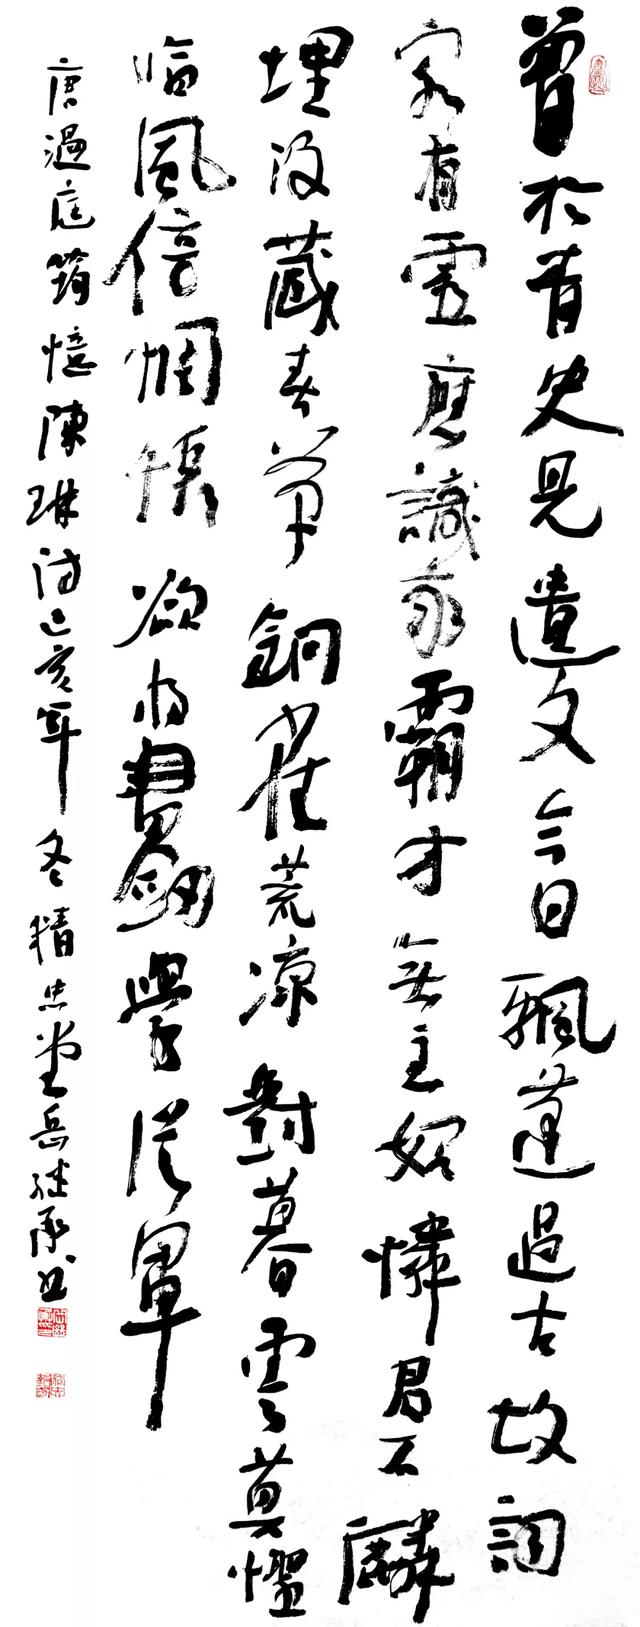 曾於青史見遺文今日飄蓬過古坟詞
客有靈應識我霸才無主始憐君石麟
埋没藏春草銅雀荒凉對暮雲莫
臨風倍惆悵欲将書劍學從軍
唐温庭筠憶陳琳詩己亥年冬精忠堂岳继承书